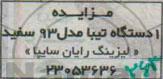 مزایده
۱دستگاه تیبا مدل ۹۳ سفید
« لیزینگ رایان سایپا »
۲۳۰۵۳۶۳۶